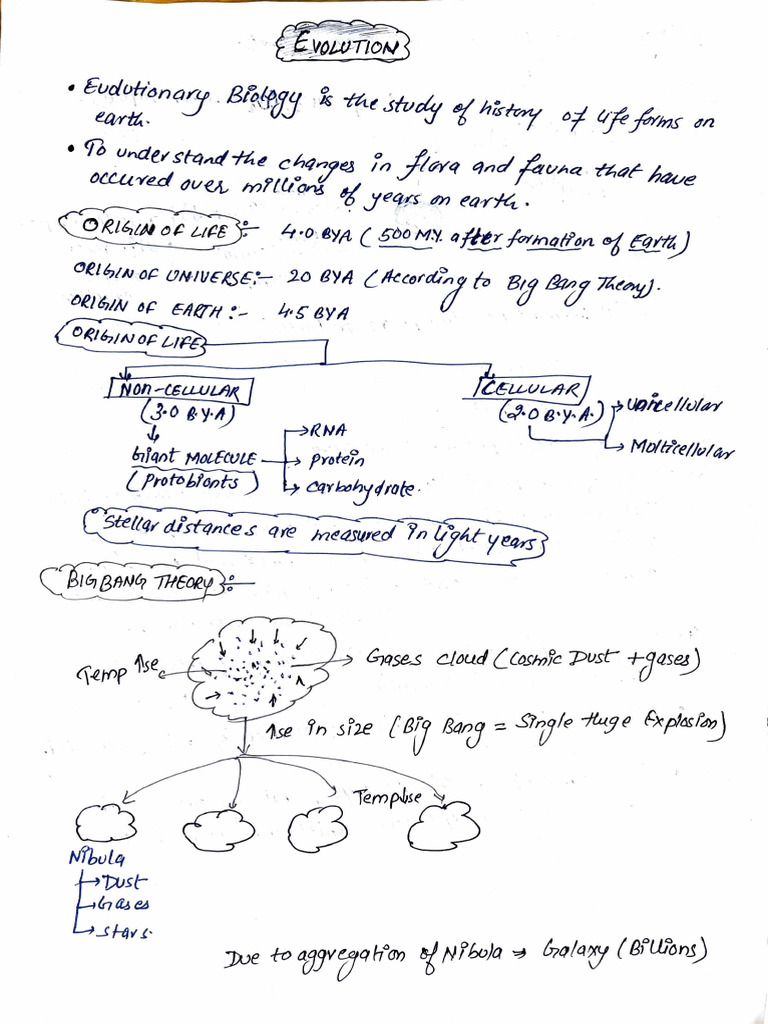 EVOLUTION
• Evolutionary Biology is the study of history of life forms on
earth.
• To understand the changes in flora and fauna that have
occured over millions of years on earth.
ORIGIN OF LIFE :- 4.0 BYA (500 M.Y. after formation of Earth)
ORIGIN OF UNIVERSE :- 20 BYA (According to Big Bang Theory).
ORIGIN OF EARTH :- 4.5 BYA
ORIGIN OF LIFE
NON-CELLULAR
CELLULAR
(3.0 B.Y.A)
(2.0 B.Y.A.)
Unicellular
Molticellular
Giant MOLECULE
(Protobionts)
RNA
Protein
Carbohydrate.
Stellar distances are measured in light years
BIG BANG THEORY :-
Temp ↑se
Gases cloud (Cosmic Dust + gases)
↑se in size (Big Bang = Single Huge Explosion)
Temp↓se
Nibula
→Dust
→Gases
→Stars.
Due to aggregation of Nibula → Galaxy (Billions)